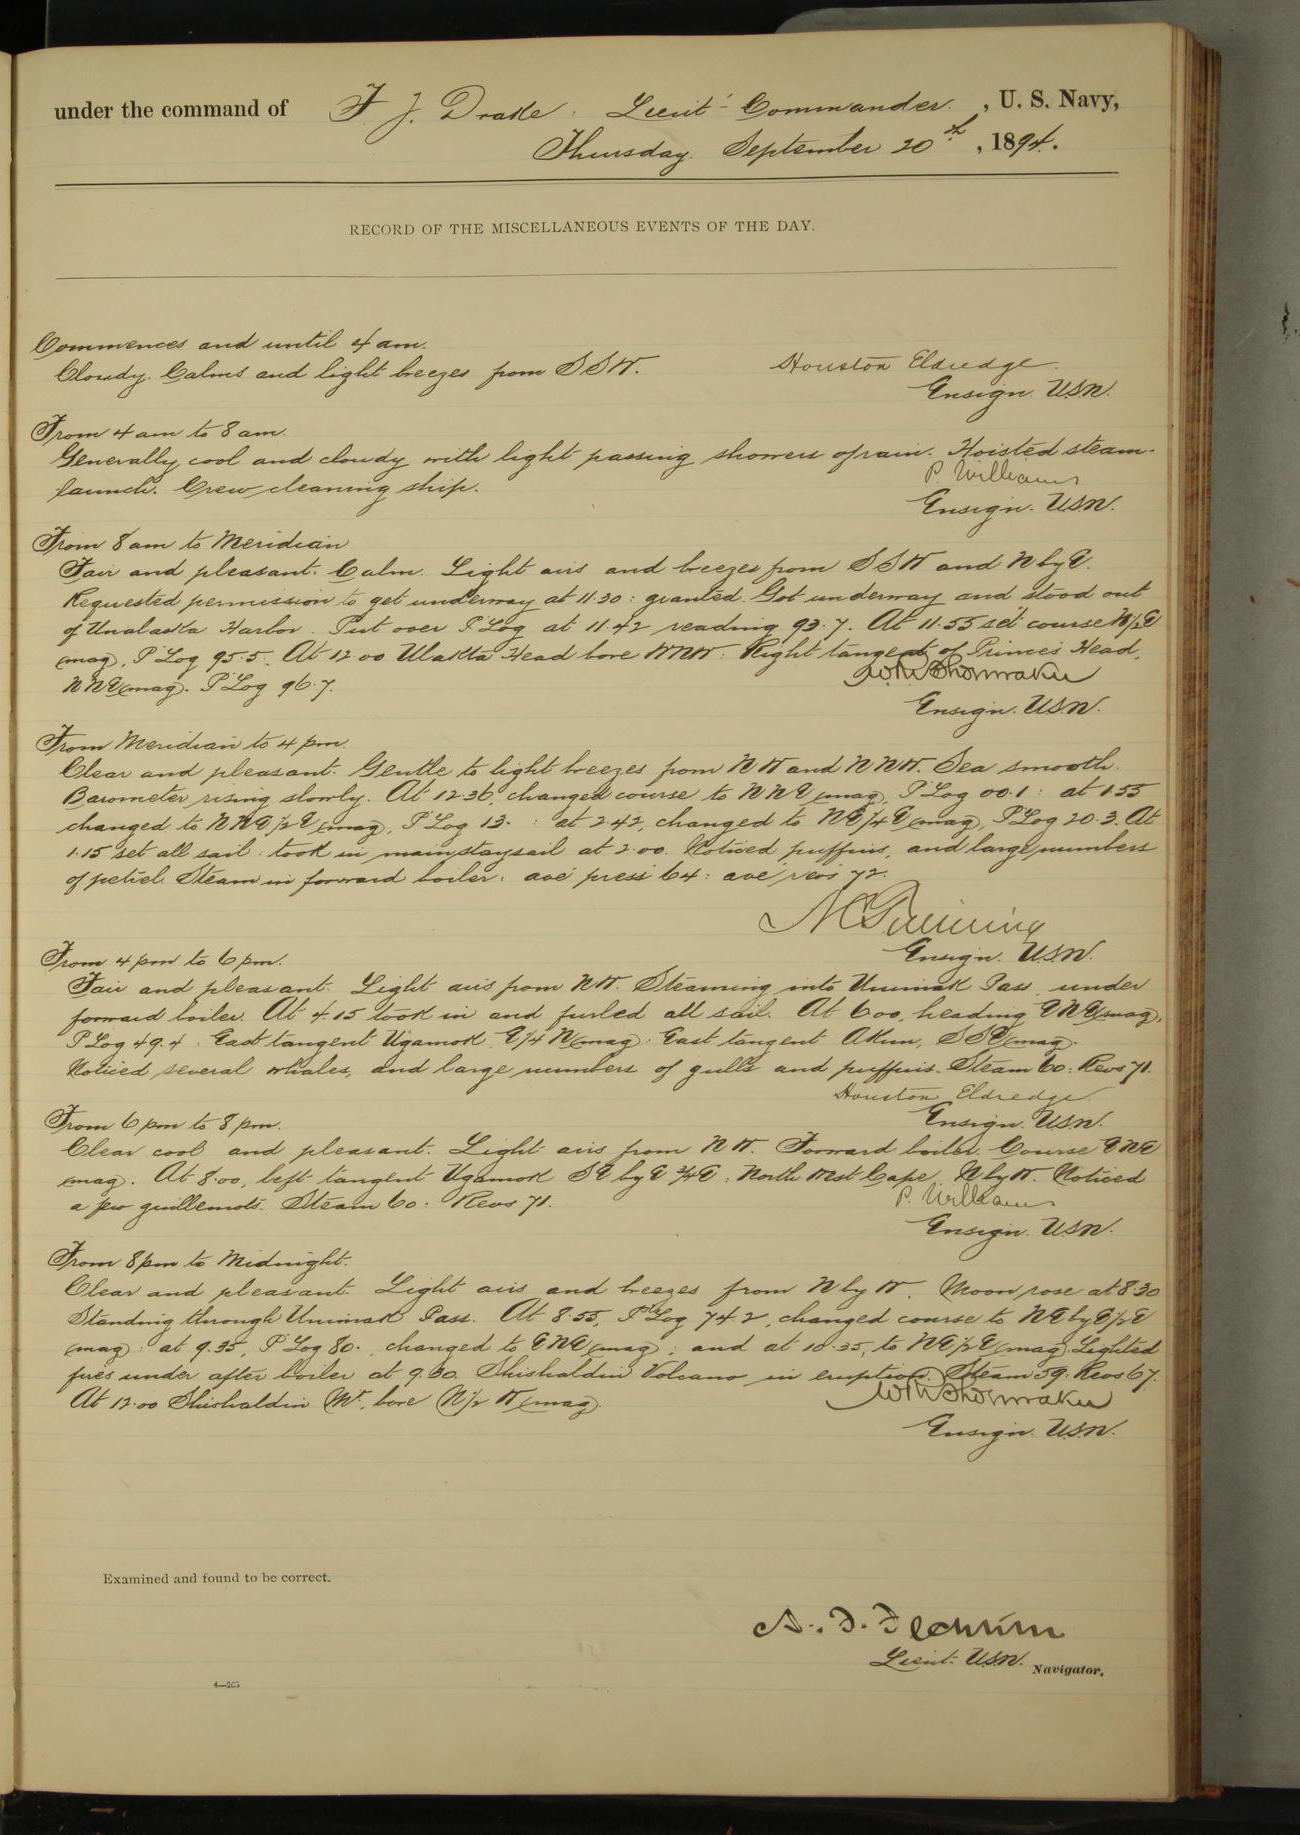 under the command of F. J. Drake. Lieut- Commander. , U. S. Navy,
Thursday. September 20th. , 1894.
RECORD OF THE MISCELLANEOUS EVENTS OF THE DAY.
Commences and until 4 am.
Cloudy. Calms and light breezes from SSW. Houston Eldredge.
Ensign. U.S.N.
From 4 am to 8 am.
Generally cool and cloudy with light passing showers of rain. Hoisted steam-
launch. Crew cleaning ship. P. Williams
Ensign. U.S.N.
From 8 am to Meridian
Fair and pleasant. Calm. Light airs and breezes from SSW and N by E.
Requested permission to get underway at 11.30: granted. Got underway and stood out
of Unalaska Harbor. Put over P Log at 11.42 reading 93.7. At 11.55 set course N½E
(mag), P Log 95.5. At 12.00 Ulakta Head bore WNW. Right tangent of Prince's Head,
NNE (mag). P Log 96.7. W.R. Shoemaker
Ensign. U.S.N.
From Meridian to 4 pm.
Clear and pleasant. Gentle to light breezes from NW and NNW. Sea smooth.
Barometer rising slowly. At 12.36, changed course to NNE (mag), P Log 00.1: at 1.55
changed to NNE½E (mag), P Log 13. : at 2.42, changed to NE¼E (mag), P Log 20.3. At
1.15 set all sail: took in mainstaysail at 2.00. Noticed puffins, and large numbers
of petrel. Steam in forward boiler: ave press 64: ave revs 72.
Ensign. U.S.N.
From 4 pm to 6 pm.
Fair and pleasant. Light airs from NW. Steaming into Unimak Pass, under
forward boiler. At 4.15 took in and furled all sail. At 6.00, heading ENE (mag),
P Log 49.4. East tangent Ugamok, E¼N (mag). East tangent Akun, SSE (mag).
Noticed several whales, and large numbers of gulls and puffins. Steam 60: Revs 71.
Houston Eldredge
Ensign. U.S.N.
From 6 pm to 8 pm.
Clear cool and pleasant. Light airs from NW. Forward boiler. Course ENE
(mag). At 8.00, left tangent Ugamok SE by E ¾E: North West Cape, N by W. Noticed
a few guillemots. Steam 60. Revs 71. P. Williams
Ensign. U.S.N.
From 8 pm to Midnight.
Clear and pleasant. Light airs and breezes from N by W. Moon rose at 8.30
Standing through Unimak Pass. At 8.55, P Log 74.2, changed course to NE by E½E
(mag): at 9.35, P Log 80., changed to ENE (mag); and at 10.35, to NE½E (mag). Lighted
fires under after boiler at 9.30. Shishaldin Volcano in eruption. Steam 59. Revs 67.
At 12.00 Shishaldin Mt. bore N½W (mag). W.R. Shoemaker
Ensign. U.S.N.
Examined and found to be correct.
Lieut. U.S.N. Navigator.